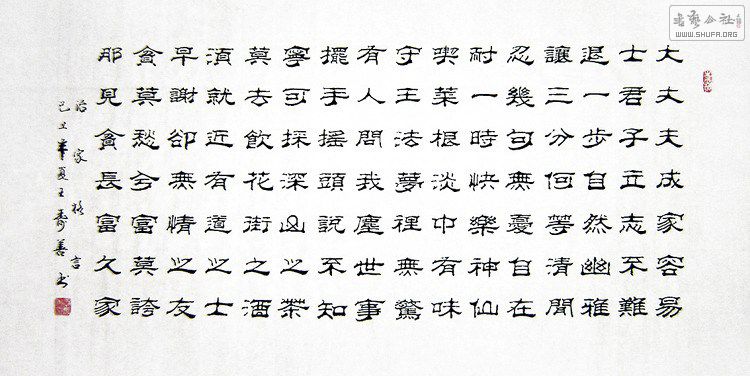 大丈夫成家容易
士君子立志不難
退一步自然幽雅
讓三分何等清閒
忍幾句無憂自在
耐一時快樂神仙
喫菜根淡中有味
守王法夢裡無驚
有人問我塵世事
擺手搖頭說不知
寧可採深山之茶
莫去飲花街之酒
須就近有道之士
早謝卻無情之友
貪莫愁兮富莫誇
那見貪長富久家
治家格言
己丑年夏王壽善书
WWW.SHUFA.ORG